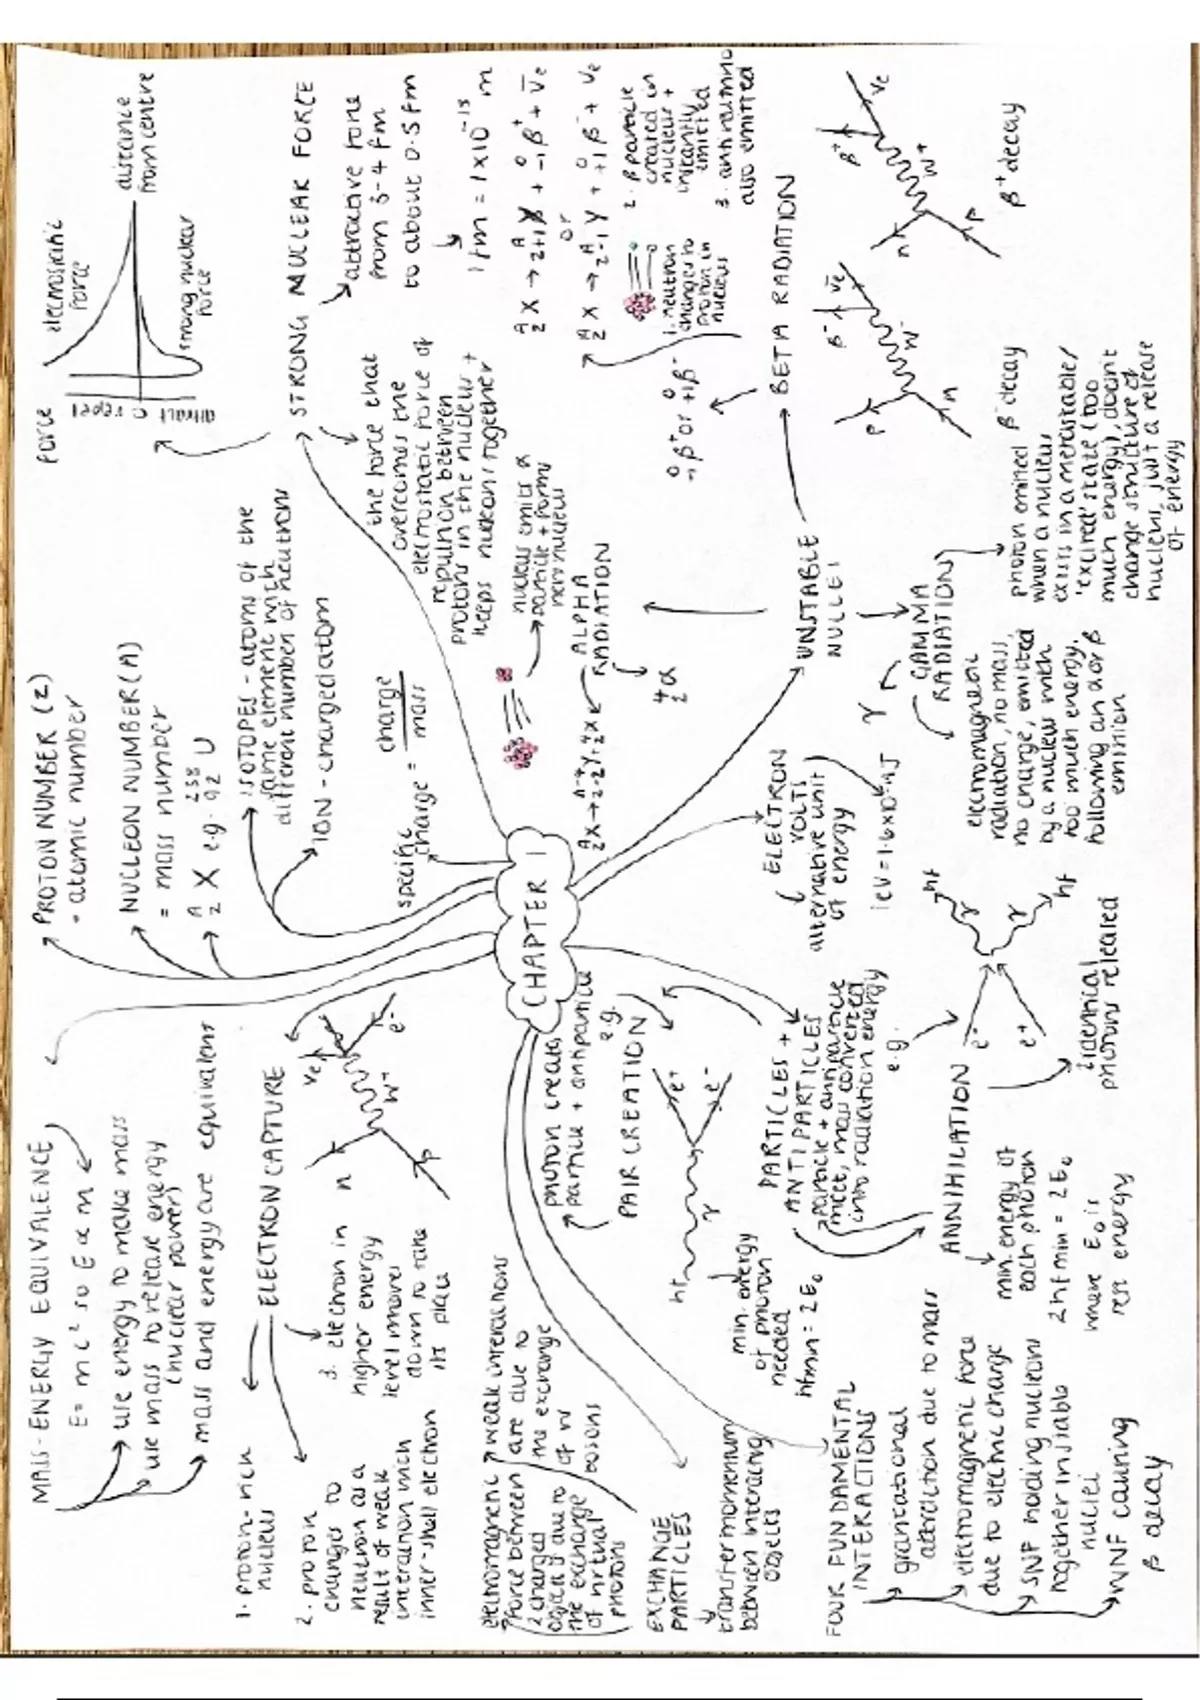 MASS-ENERGY EQUIVALENCE
E = mc² so E ∝ m
use energy to make mass
use mass to release energy
(nuclear power)
mass and energy are equivalent
PROTON NUMBER (Z)
- atomic number
NUCLEON NUMBER (A)
= mass number
A Z X e.g. 238 92 U
ISOTOPES - atoms of the
same element with
different number of neutrons
ION - charged atom
specific charge = charge / mass
force
repel
0
attract
electrostatic
force
strong nuclear
force
distance
from centre
STRONG NUCLEAR FORCE
attractive force
from 3-4 fm
to about 0.5 fm
1 fm = 1 x 10⁻¹⁵ m
the force that
overcomes the
electrostatic force of
repulsion between
protons in the nucleus +
keeps nucleons together
ELECTRON CAPTURE
1. proton-rich
nucleus
2. proton
changes to
neutron as a
result of weak
interaction with
inner-shell electron
3. electron in
higher energy
level moves
down to take
its place
n
νe
W⁺
p
e⁻
CHAPTER 1
nucleus emits α
particle + forms
new nucleus
ALPHA
RADIATION
4 2 α
A Z X → A-4 Z-2 Y + 4 2 α
A Z X → A Z+1 Y + 0 -1 β⁺ + ν̄e
or
A Z X → A Z-1 Y + 0 +1 β⁻ + νe
1. neutron
changes to
proton in
nucleus
2. β particle
created in
nucleus +
instantly
emitted
3. antineutrino
also emitted
0 -1 β⁺ or 0 +1 β⁻
BETA RADIATION
p
β⁻
ν̄e
W⁻
n
β⁻ decay
n
β⁺
νe
W⁺
p
β⁺ decay
UNSTABLE
NUCLEI
GAMMA
RADIATION
γ
electromagnetic
radiation, no mass
no charge, emitted
by a nucleus with
too much energy,
following an α or β
emission
photon emitted
when a nucleus
exists in a metastable/
'excited' state (too
much energy), doesnt
change structure of
nucleus, just a release
of energy
ELECTRON
VOLTS
alternative unit
of energy
PARTICLES +
ANTIPARTICLES
particle + antiparticle
meet, mass converted
into radiation energy
e.g.
ANNIHILATION
e⁻
e⁺
γ
γ
hf
hf
identical
photons released
min. energy of
each photon
2hfmin = 2E₀
where E₀ is
rest energy
e.g.
PAIR CREATION
photon creates
particle + antiparticle
hf
γ
e⁺
e⁻
min. energy
of photon
needed
hfmin = 2E₀
EXCHANGE
PARTICLES
transfer momentum
between interacting
objects
electromagnetic
force between
2 charged
objects due to
the exchange
of virtual
photons
weak interactions
are due to
the exchange
of W
bosons
FOUR FUNDAMENTAL
INTERACTIONS
gravitational
attraction due to mass
electromagnetic force
due to electric charge
SNF holding nucleons
together in stable
nuclei
WNF causing
β decay